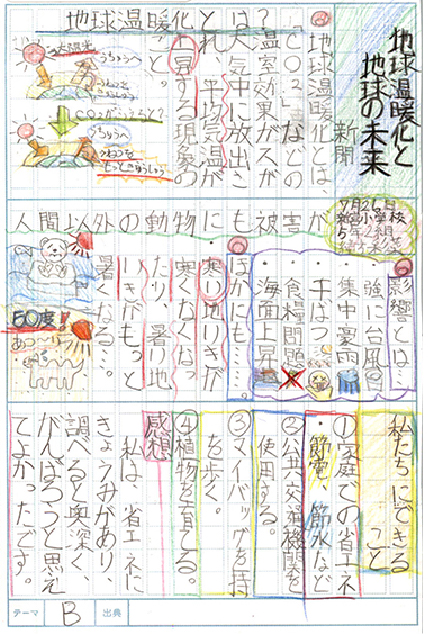 地球温暖化と
地球の未来
新聞
地球温暖化とは、
「CO2」などの
温室効果ガスが
大気中に放出さ
れ、平均気温が
上昇する現象の
こと。
地球温暖化
太陽光
人間以外の動物にも被害が
影響とは…
・強に台風
・集中豪雨
・干ばつ
・食糧問題
・海面上昇
ほかにも…
・寒い地いきが
寒くなくなっ
たり、暑い地
いきがもっと
暑くなる…。
50度!
あつ〜い
私たちにできる
こと
①家庭での省エネ
・節電、節水など
②公共交通機関を
使用する。
③マイバッグを持
を歩く。
④植物を育てる。
感想
私は、省エネに
きょうみがあり、
調べると奥深く、
がんばろうと思え
てよかったです。
テーマ
B
出典